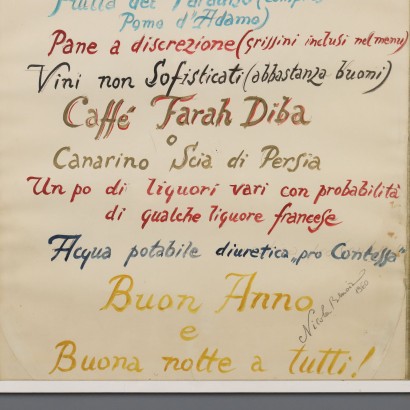 Frutta del Paradiso (compreso
Pomo d'Adamo)
Pane a discrezione (grissini inclusi nel menu)
Vini non Sofisticati (abbastanza buoni)
Caffé Farah Diba
o
Canarino Scià di Persia
Un po di liquori vari con probabilità
di qualche liquore francese
Acqua potabile diuretica „pro Contessa"
Buon Anno
e
Buona notte a tutti!
Nicola
1960